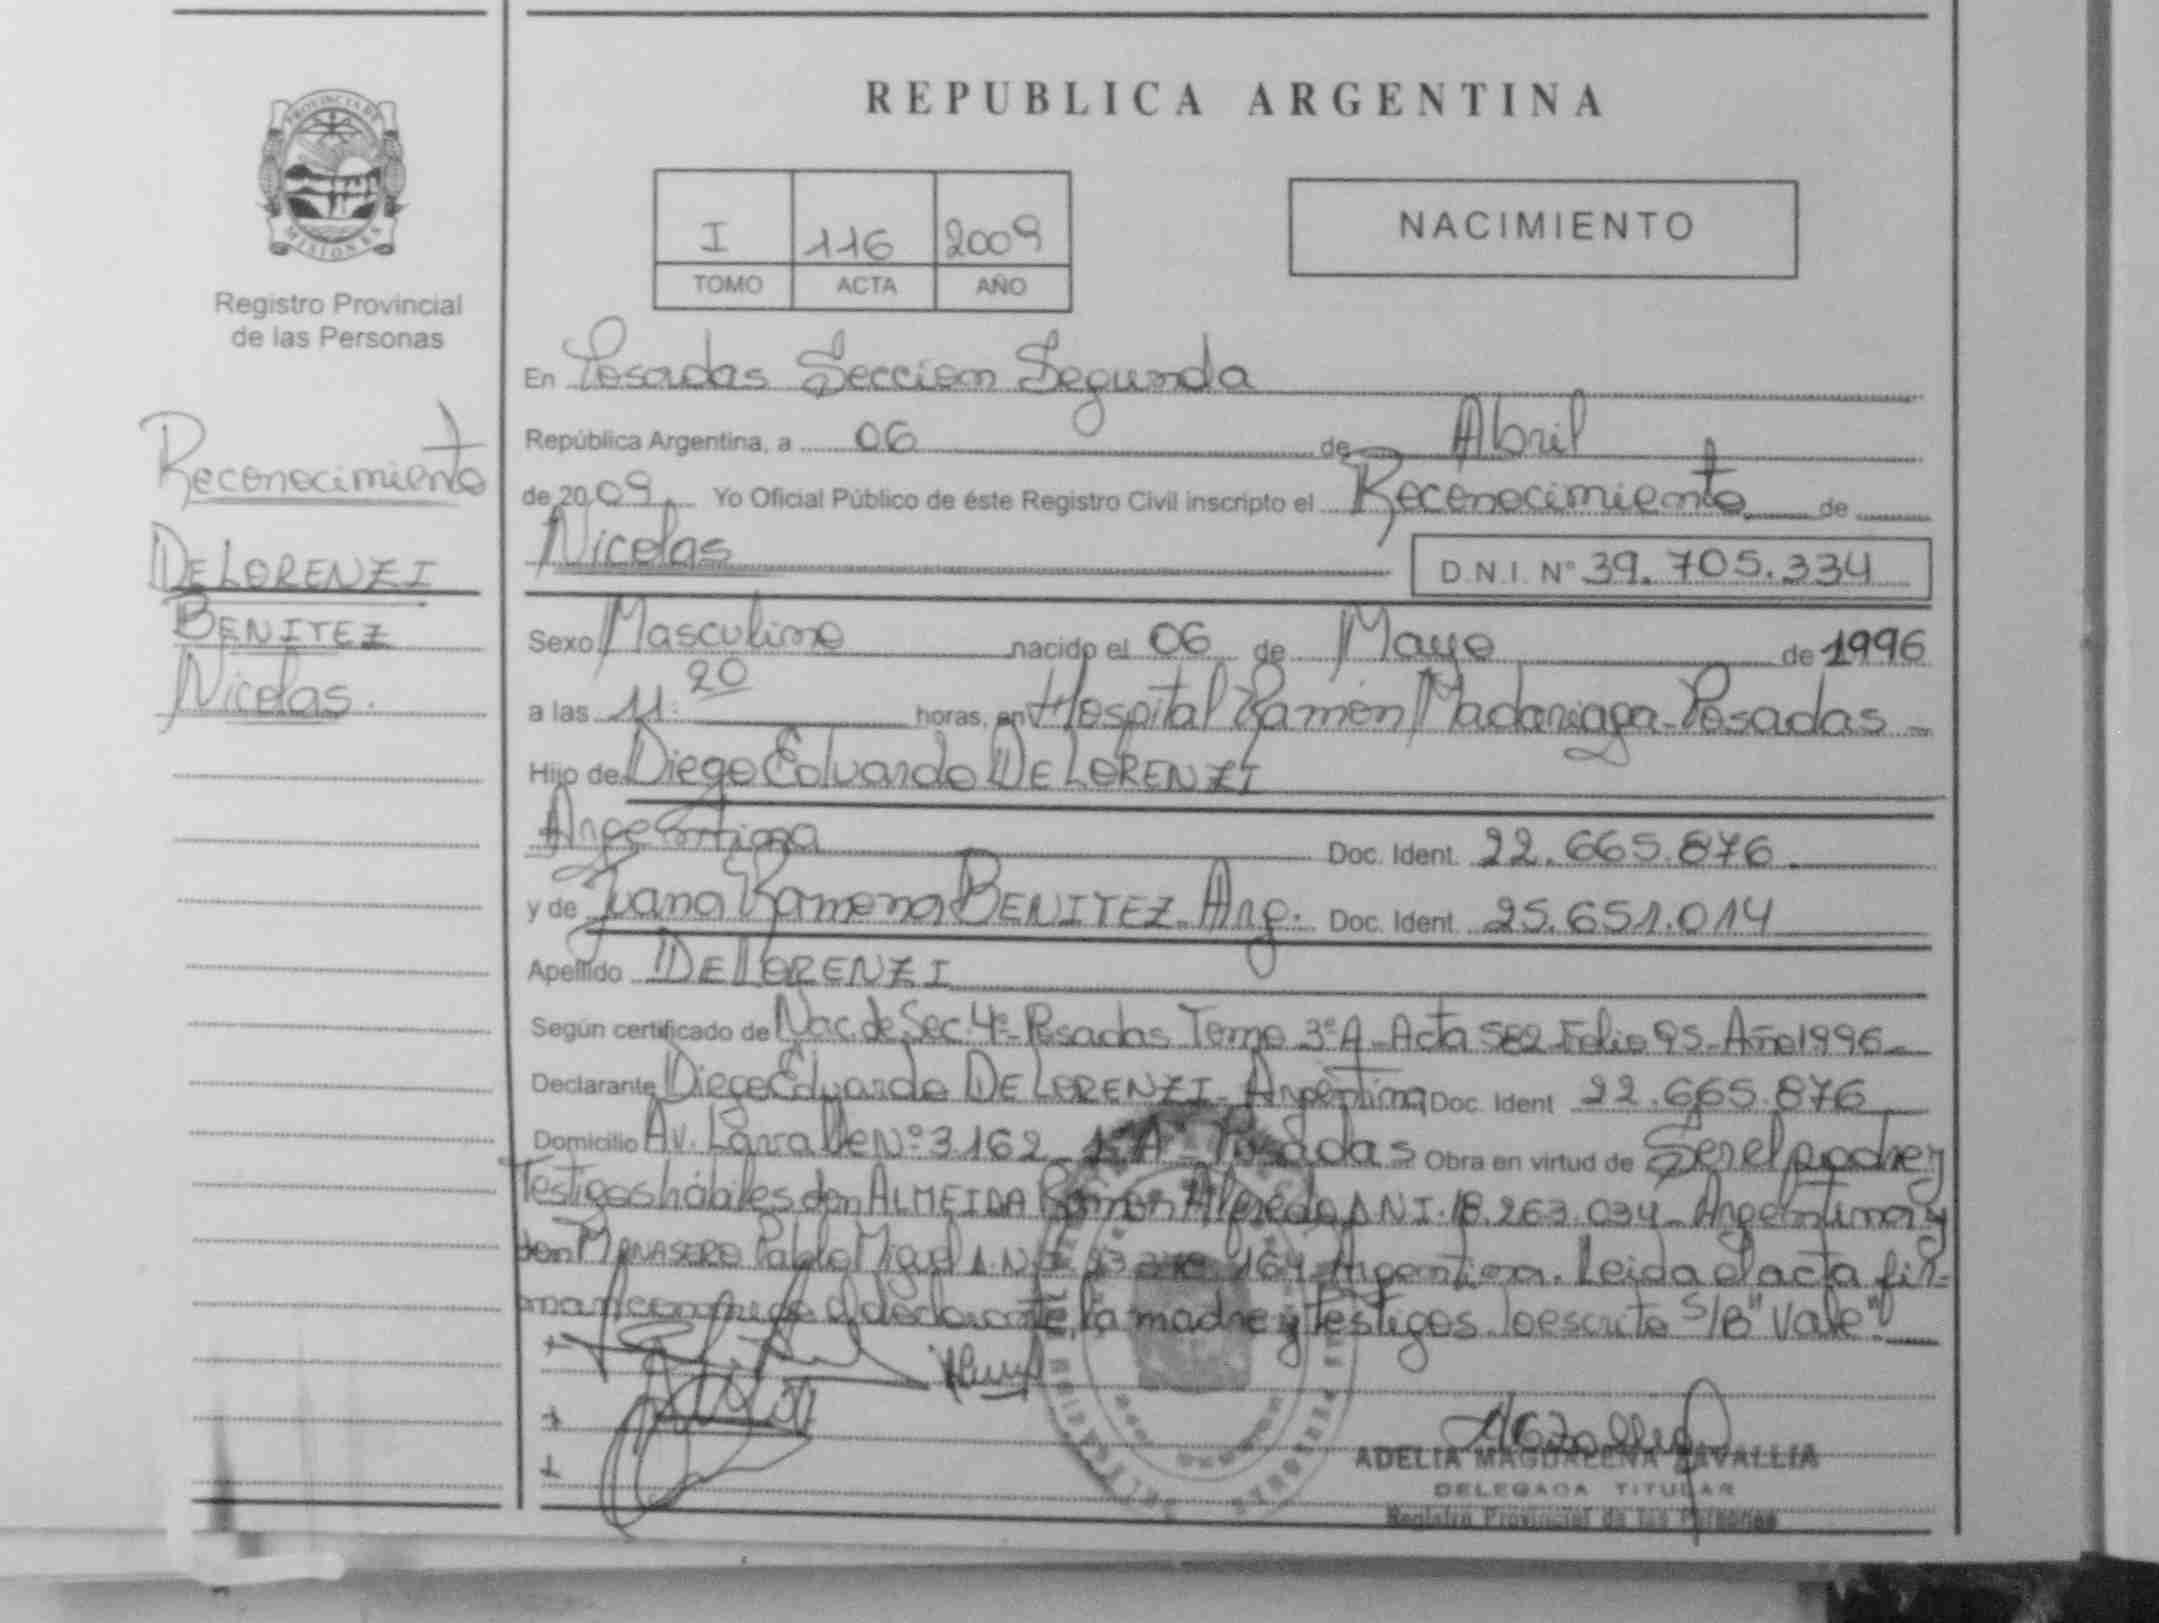 PROVINCIA DE
MISIONES
Registro Provincial
de las Personas
Reconocimiento
DE LORENZI
BENITEZ
Nicolas.
REPUBLICA ARGENTINA
I 116 2009
TOMO ACTA AÑO
NACIMIENTO
En Posadas Seccion Segunda
República Argentina, a 06 de Abril
de 2009 Yo Oficial Público de éste Registro Civil inscripto el Reconocimiento de
Nicolas D.N.I. N° 39.705.334
Sexo Masculino nacido el 06 de Mayo de 1996
a las 11:20 horas, en Hospital Ramón Madariaga-Posadas
Hijo de Diego Eduardo DE LORENZI
Argentina Doc. Ident. 22.665.876
y de Juana Ramona BENITEZ - Arg. Doc. Ident. 25.651.014
Apellido DE LORENZI
Según certificado de Nac. de Sec. 4ª- Posadas Tomo 3ºA - Acta 582 Folio 95 - Año 1996
Declarante Diego Eduardo DE LORENZI - Argentina Doc. Ident 22.665.876
Domicilio Av. Lavalle Nº 3162 Posadas Obra en virtud de Ser el padre y
Testigos hábiles don ALMEIDA Ramón Alfredo D.N.I. 18.263.034 - Argentina y
don MANASERO Pablo Miguel D.N.I. 164 - Argentina. Leida el acta fir-
man conmigo el declarante, la madre y testigos. lo escrito S/B "Vale"
ADELIA MAGDALENA ZAVALLIA
DELEGADA TITULAR
Registro Provincial de las Personas